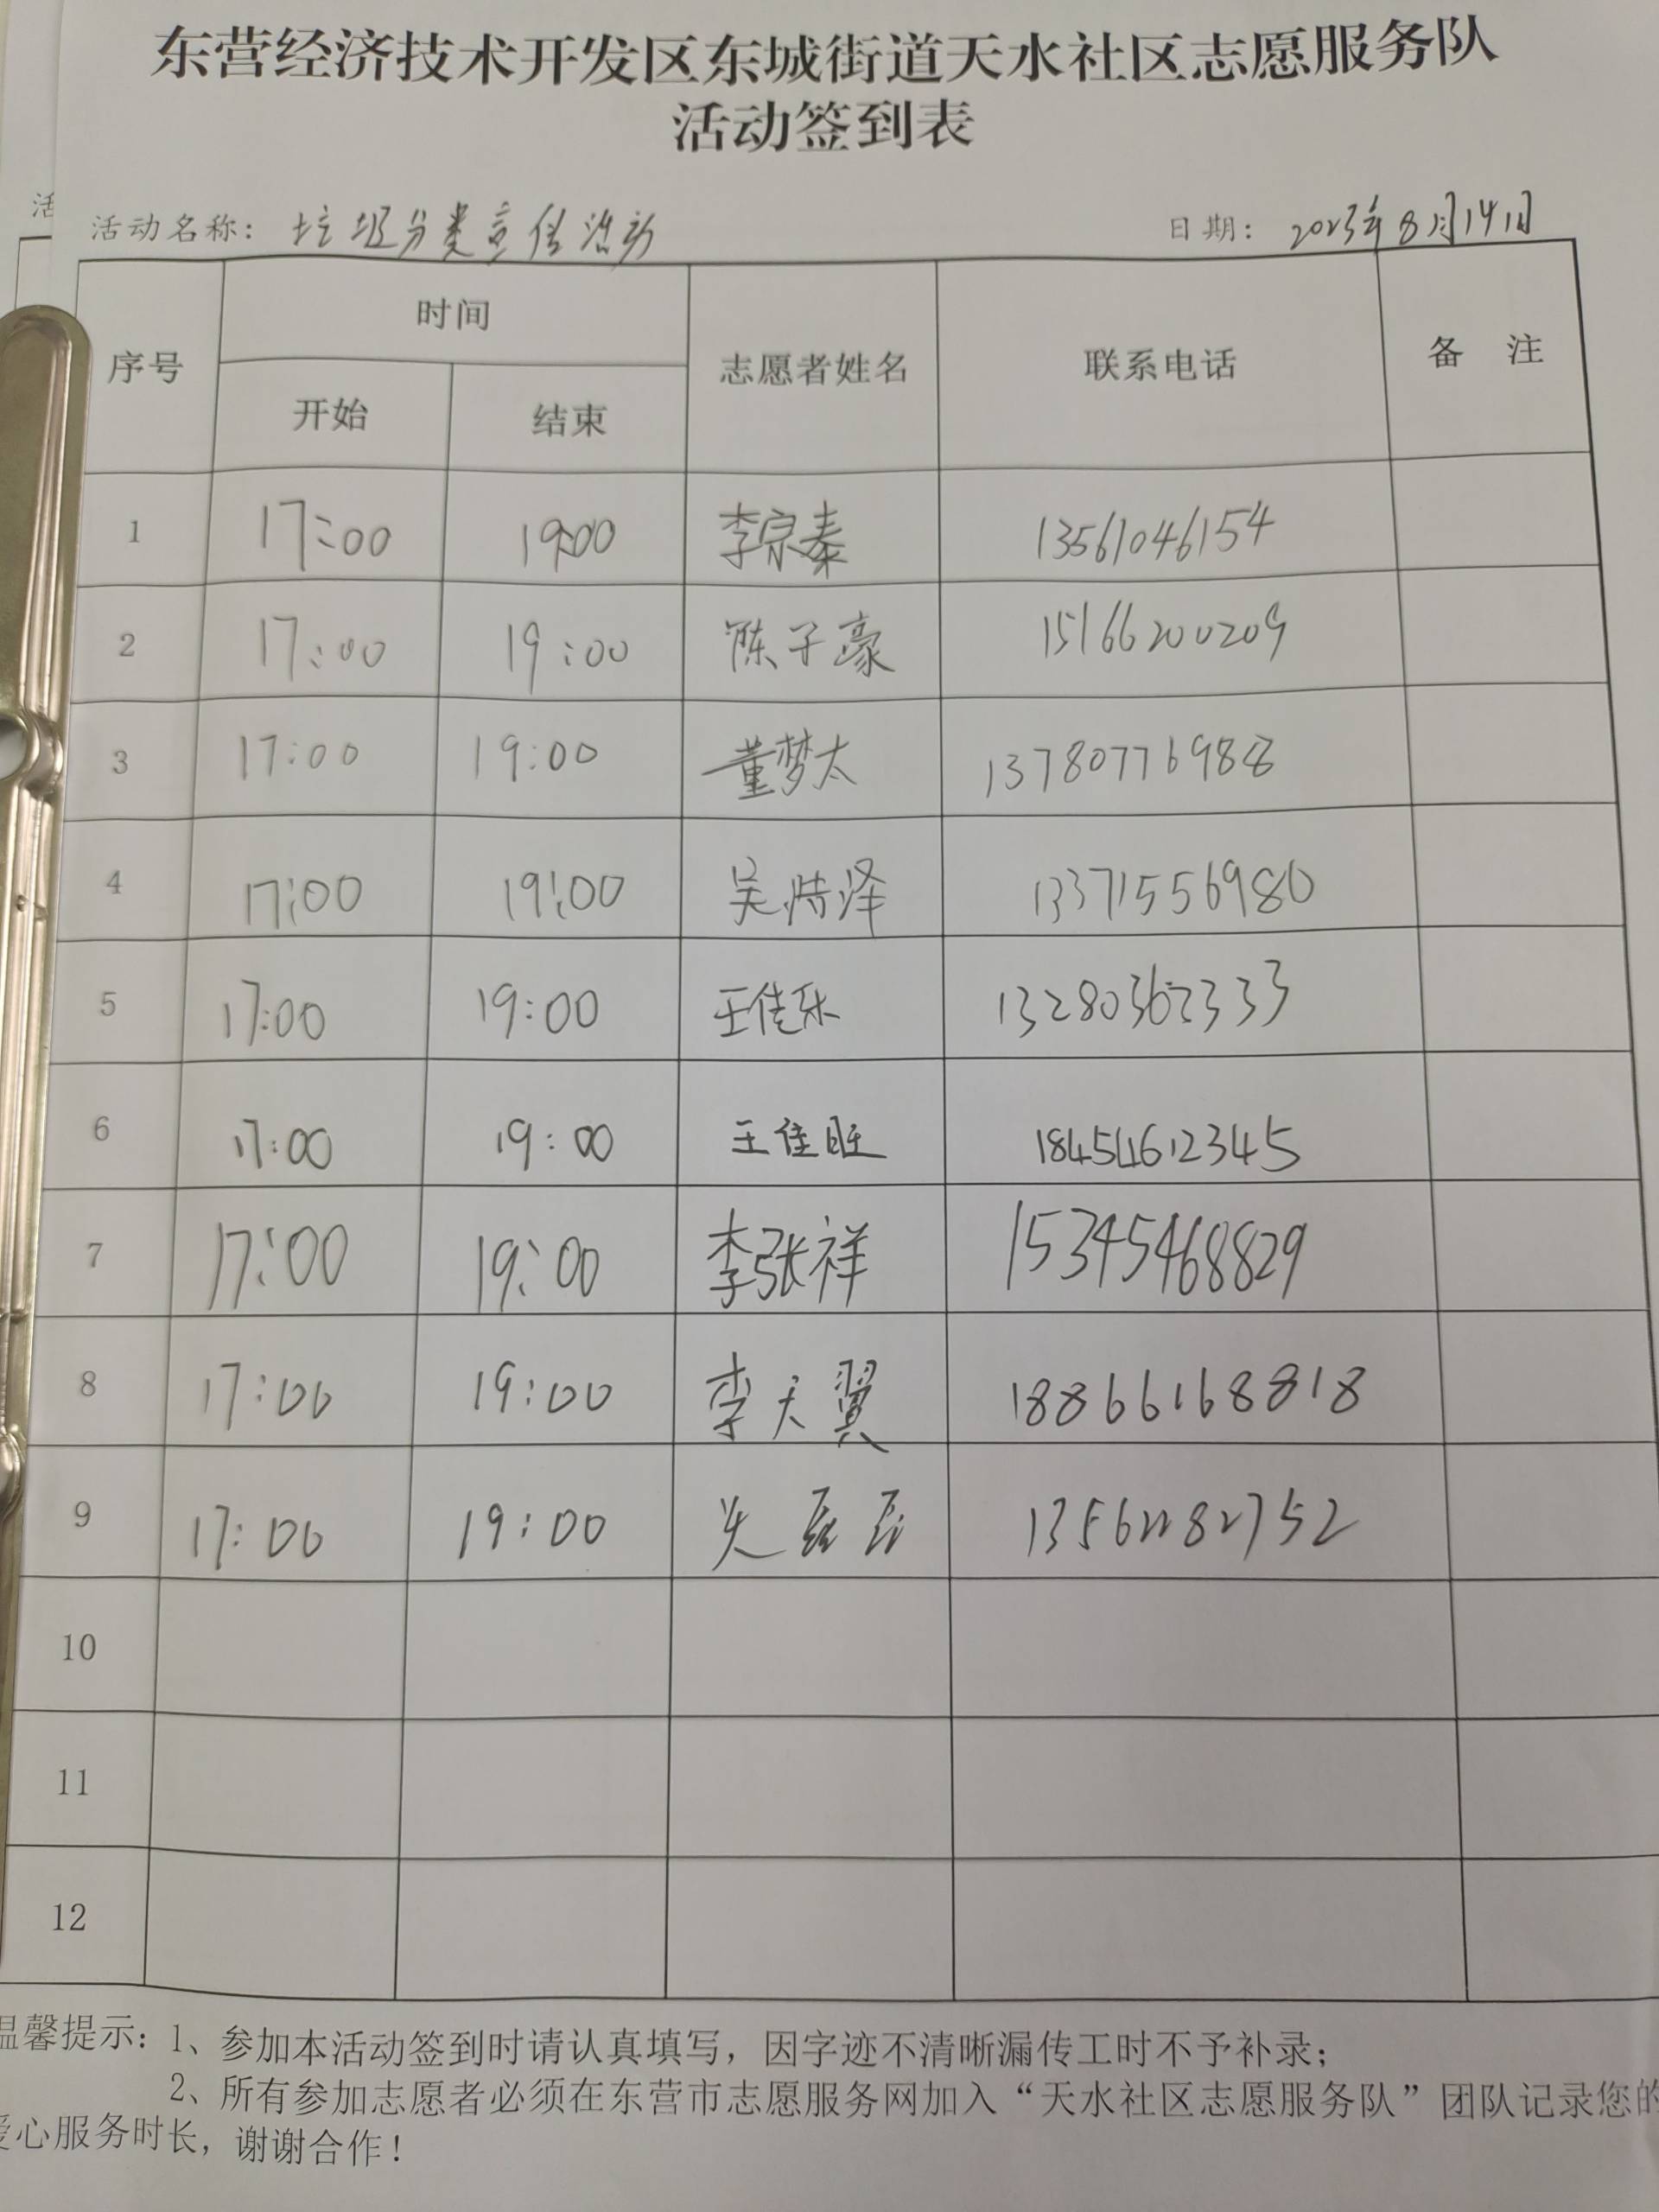 东营经济技术开发区东城街道天水社区志愿服务队
活动签到表
活
活动名称: 垃圾分类宣传活动 日期: 2023年8月14日
序号 时间 志愿者姓名 联系电话 备 注
开始 结束
1 17:00 19:00 李宗秦 13561046154
2 17:00 19:00 陈子豪 15166200209
3 17:00 19:00 董梦太 13780776988
4 17:00 19:00 吴浩泽 13371556980
5 17:00 19:00 王佳乐 13280362333
6 17:00 19:00 王佳旺 18454612345
7 17:00 19:00 李张祥 15345468829
8 17:00 19:00 李天翼 18866168818
9 17:00 19:00 13562282752
10
11
12
温馨提示: 1、参加本活动签到时请认真填写，因字迹不清晰漏传工时不予补录;
2、所有参加志愿者必须在东营市志愿服务网加入“天水社区志愿服务队”团队记录您的
爱心服务时长，谢谢合作!